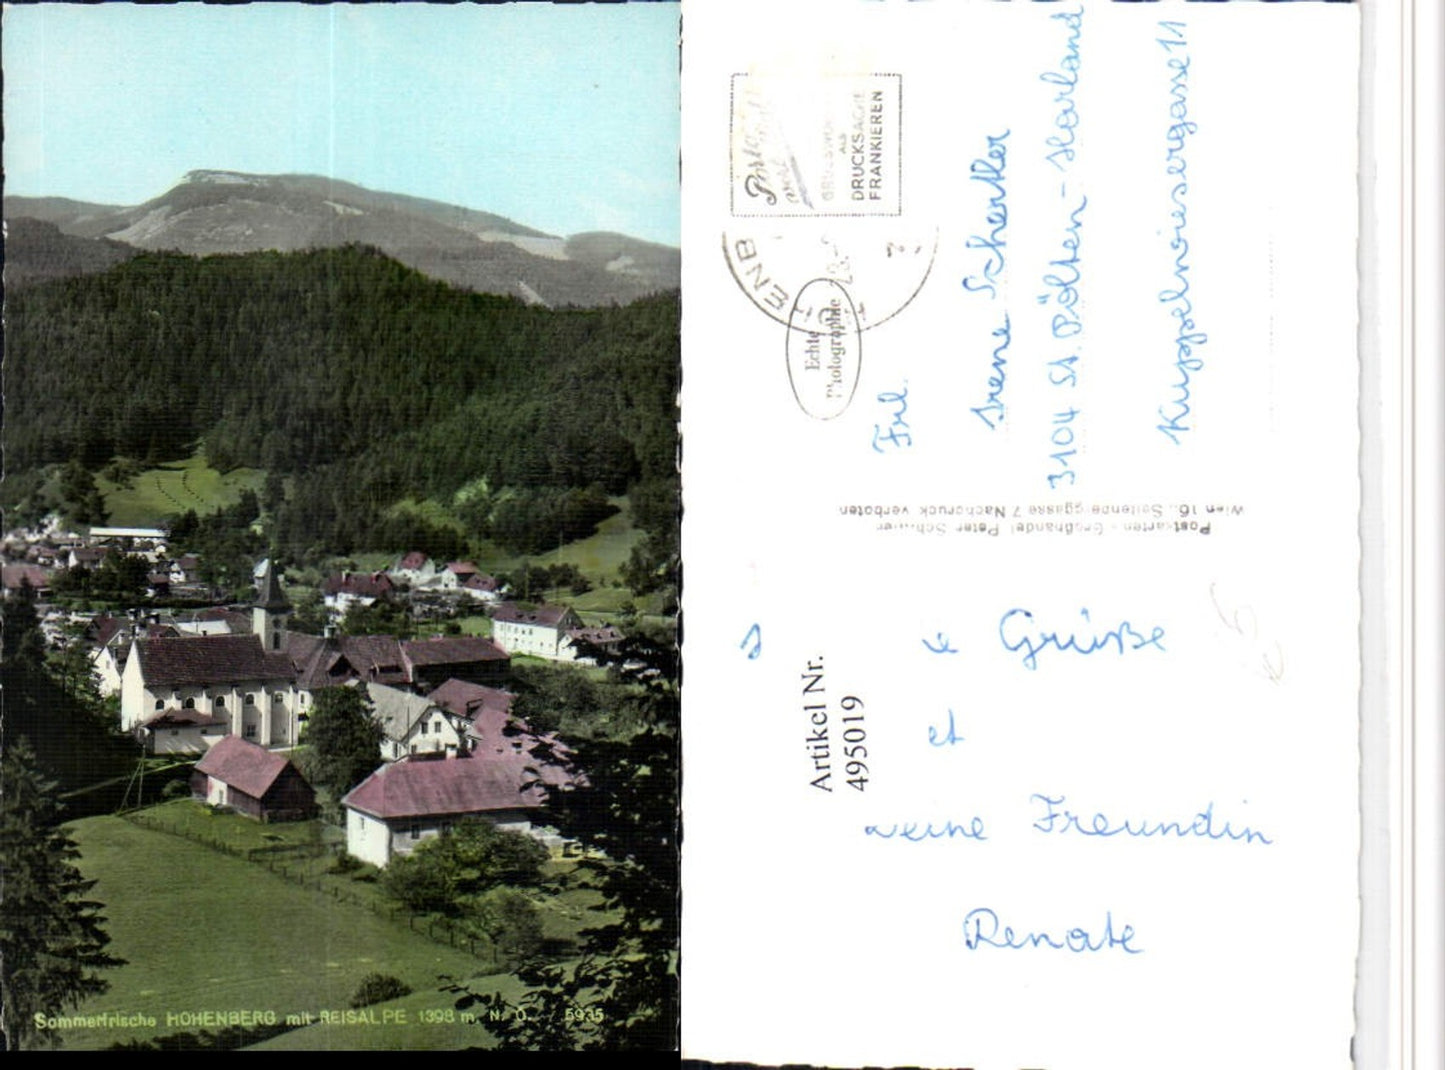 Sommerfrische HOHENBERG mit REISALPE 1398 m. N. Ö. 5935
ALS
DRUCKSACHE
FRANKIEREN
ENB
Echte
Photographie
Frl.
Irene Schenkler
3104 St. Pölten-Harland
Kuppelwiesergasse 11
Postkarten-Großhandel Peter
Wien 16., Nachdruck verboten
Artikel Nr.
495019
Grüße
et
Deine Freundin
Renate